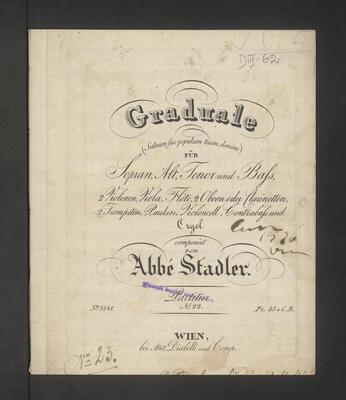 DIII-62
Graduale
(Salvum fac populum tuum, domine)
FÜR
Sopran, Alt, Tenor und Baſs,
2 Violinen, Viola, Flöte, 2 Oboen oder Clarinetten,
2 Trompeten, Pauken, Violoncell, Contrabaſs und
Orgel
componirt
von
Abbé Stadler.
Partitur
No. 22.
Pr. 45 x C.M.
WIEN,
bei Ant. Diabelli und Comp.
No 23.